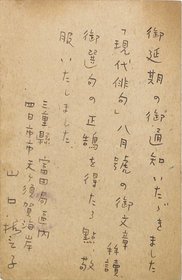 御延期の御通知いたゞきました
「現代俳句」八月號の御文章拝讀
御選句の正鵠を得たる點敬
服いたしました
三重縣富田局區内
四日市市天ヶ須賀海岸
山口誓子